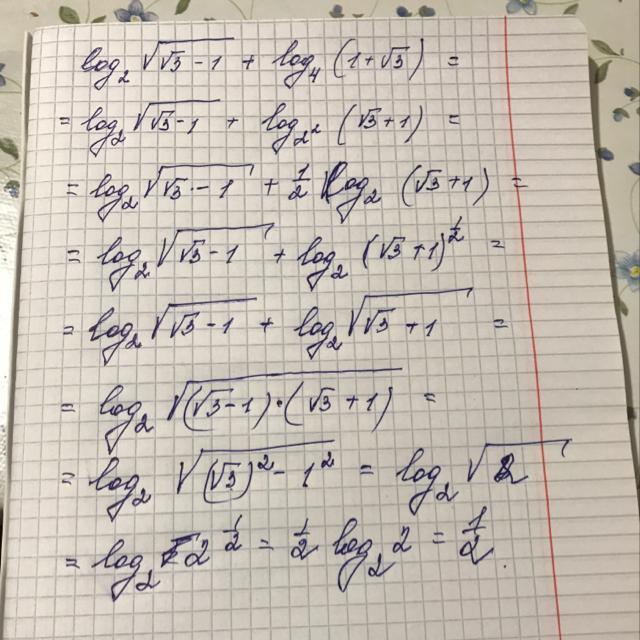 log₂ √(√3 − 1) + log₄ (1 + √3) =
= log₂ √(√3 − 1) + log₂² (√3 + 1) =
= log₂ √(√3 − 1) + 1/2 log₂ (√3 + 1) =
= log₂ √(√3 − 1) + log₂ (√3 + 1)^(1/2) =
= log₂ √(√3 − 1) + log₂ √(√3 + 1) =
= log₂ √((√3 − 1)·(√3 + 1)) =
= log₂ √((√3)² − 1²) = log₂ √2
= log₂ 2^(1/2) = 1/2 log₂ 2 = 1/2.